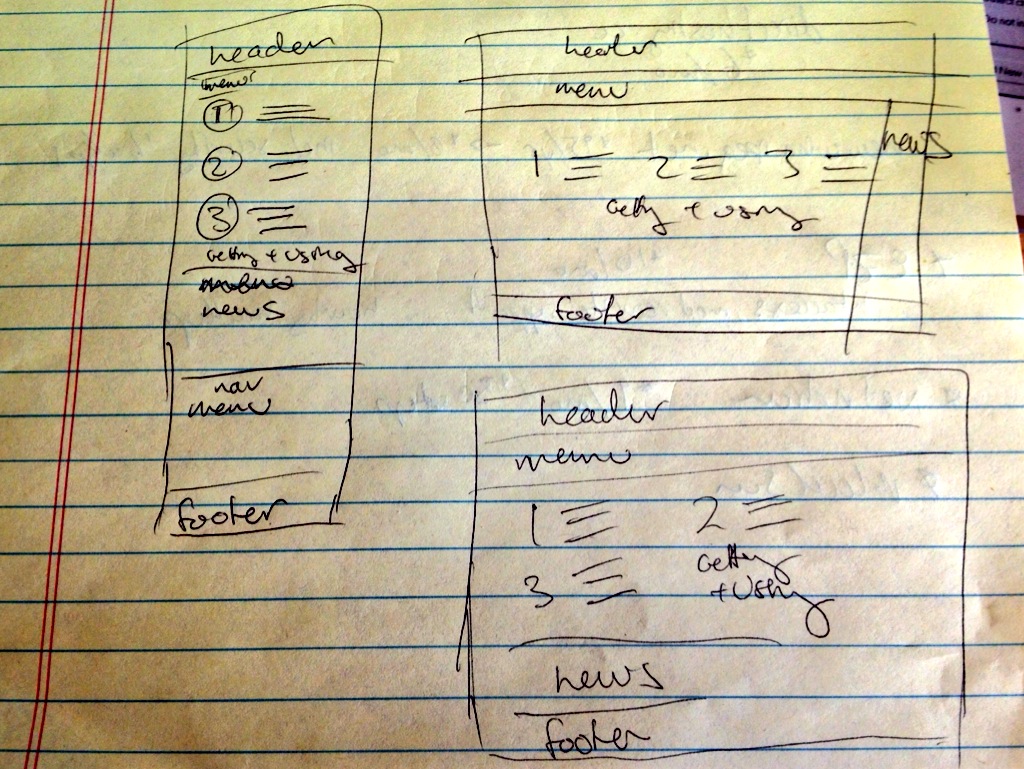 header
menu
1
2
3
getting + using
news
nav
menu
footer
header
menu
news
1 2 3
getting + using
footer
header
menu
1 2
3 getting
+ using
news
footer